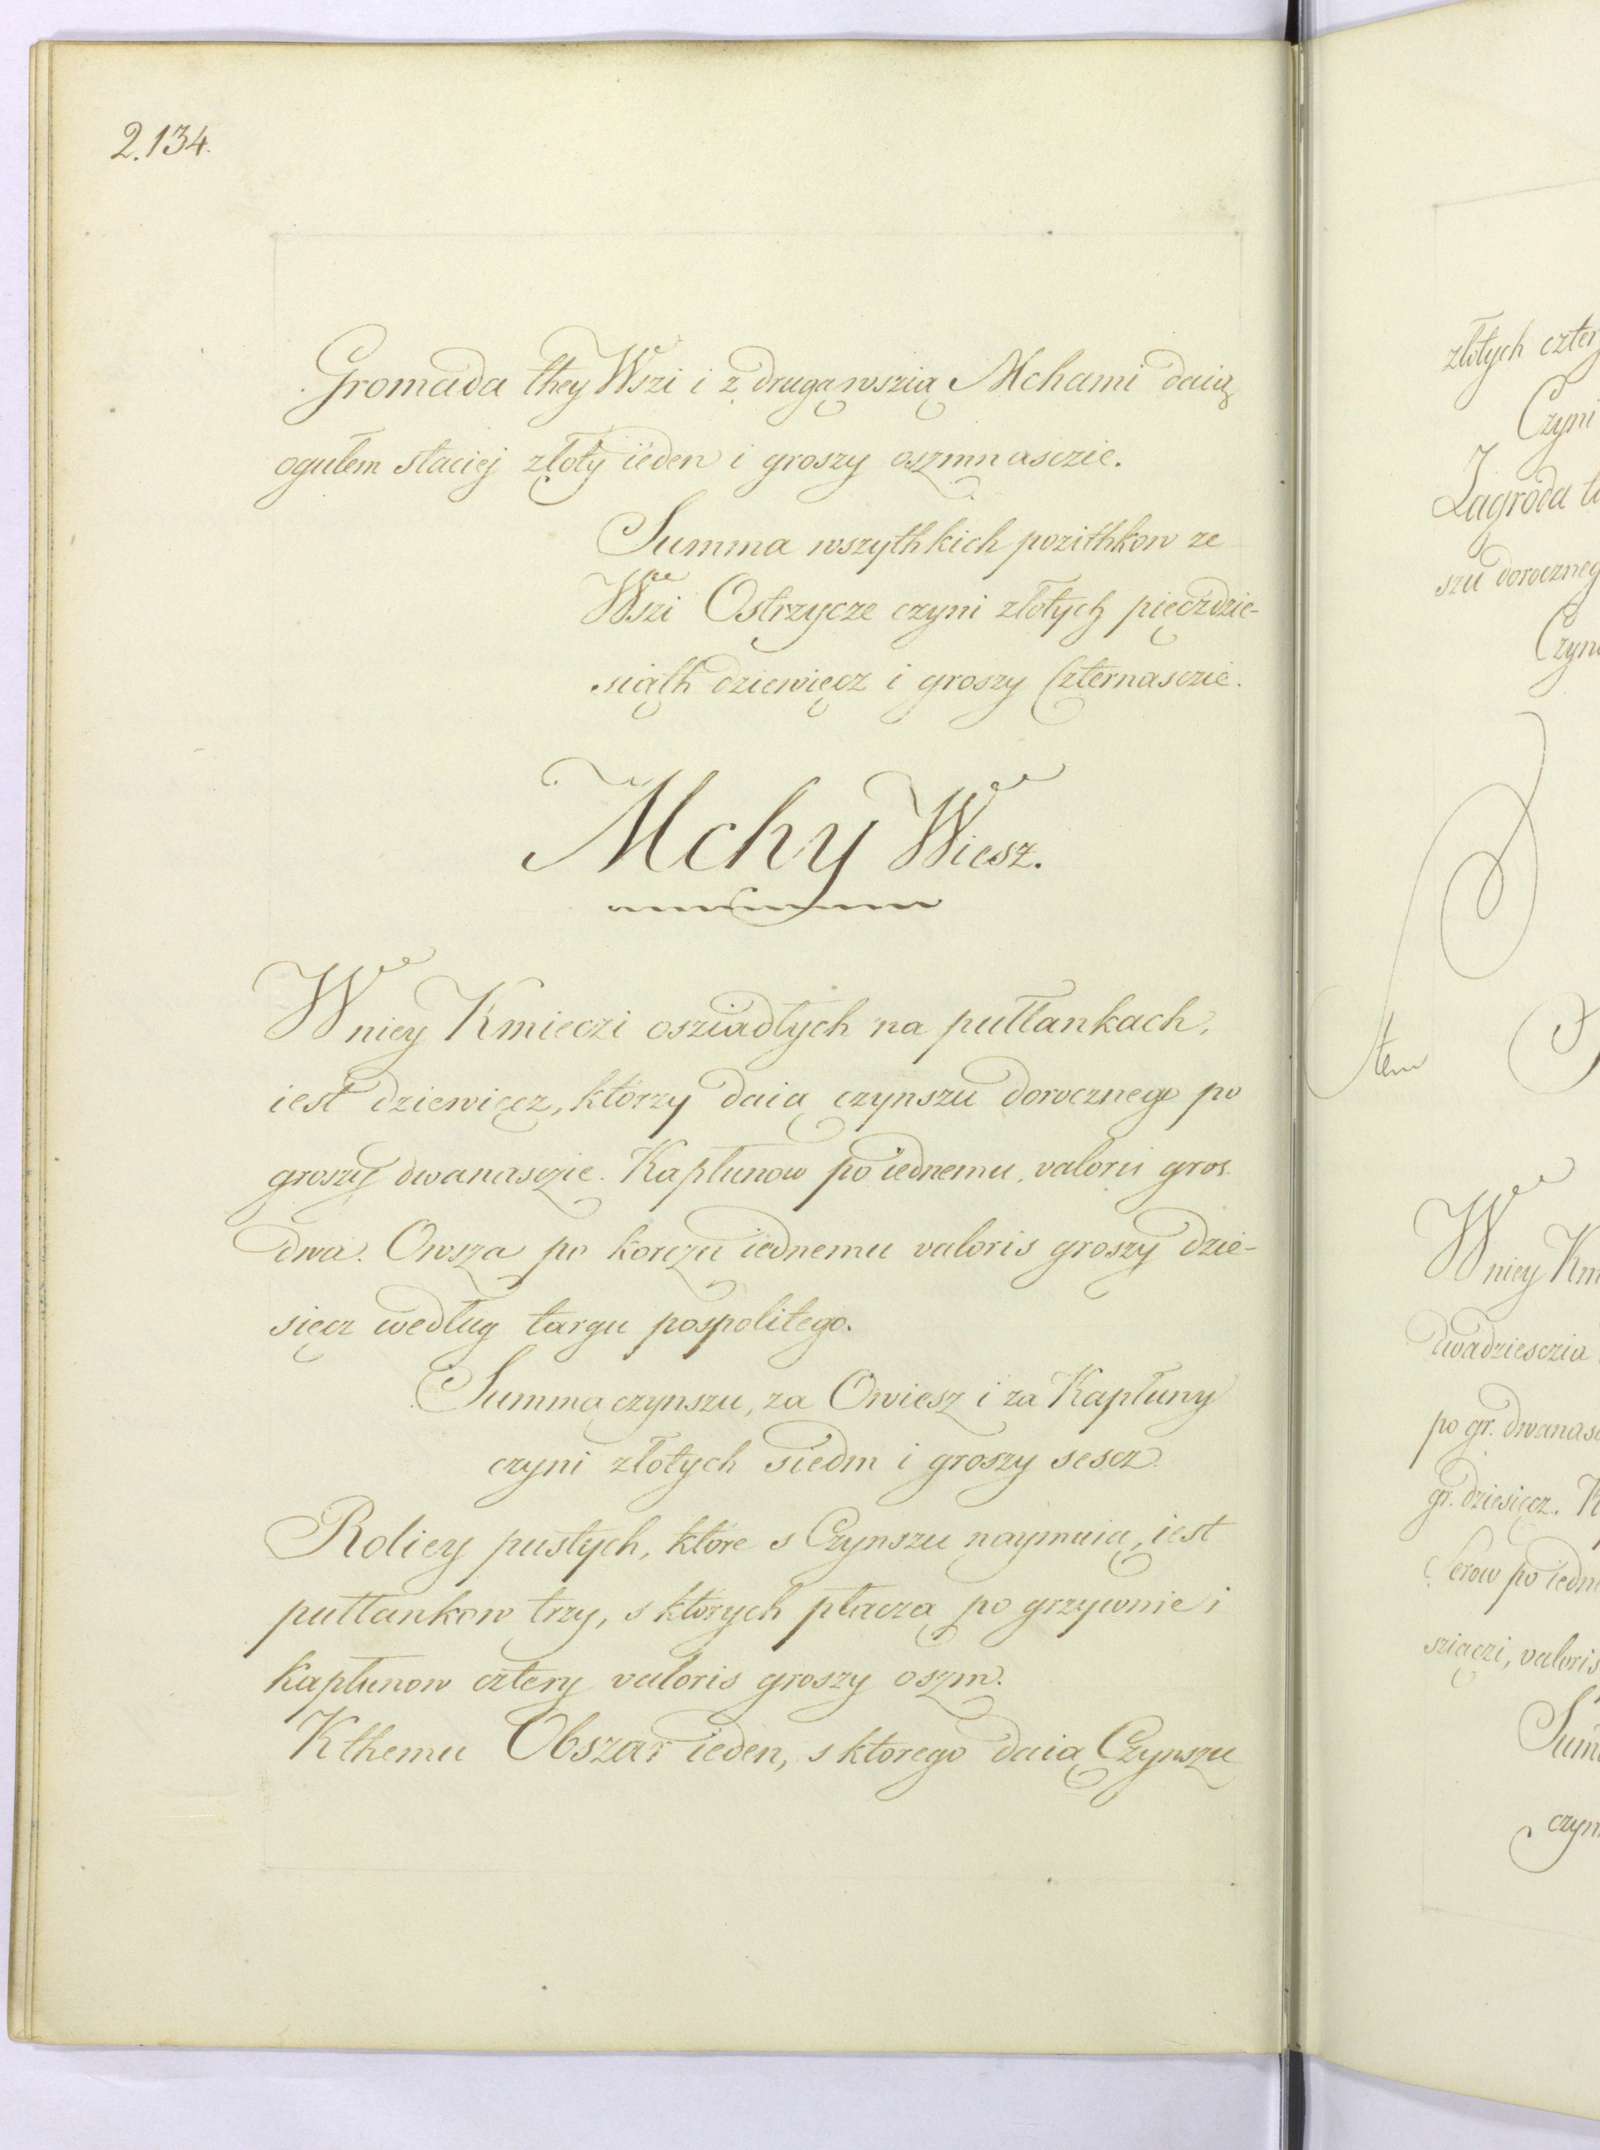 2.134.
Gromada they Wszi i z drugą wszią Mchami daią
ogułem staciej złoty ieden i groszy oszmnasczie.
Summa wszythkich pozithkow ze
Wszi Ostrzycze czyni złotych pięczdzie-
siąth dziewięcz i groszy Czternasczie.
Mchy Wiesz.
W niey Kmieczi osziadłych na pułłankach,
iest dziewięcz, którzy daią czynszu dorocznego po
groszy dwanasczie. Kapłunow po iednemu, valoris gros.
dwa. Owsza po korczu iednemu valoris groszy dzie-
sięcz według targu pospolitego.
Summa czynszu, za Owiesz i za Kapłuny
czyni złotych siedm i groszy sescz.
Roliey pustych, które s Czynszu naymuią, iest
pułłankow trzy, s których płaczą po grzywnie i
kapłunow cztery valoris groszy oszm.
Kthemu Obszar ieden, s ktorego daią Czynszu
złotych czter
Czyni
Zagroda
szu doroczneg
Czyni
W niey Km
dwadziesczia
po gr. dwanas
gr. dziesięcz. K
Serow po iedn
sziączi, valoris
Sum
czyn